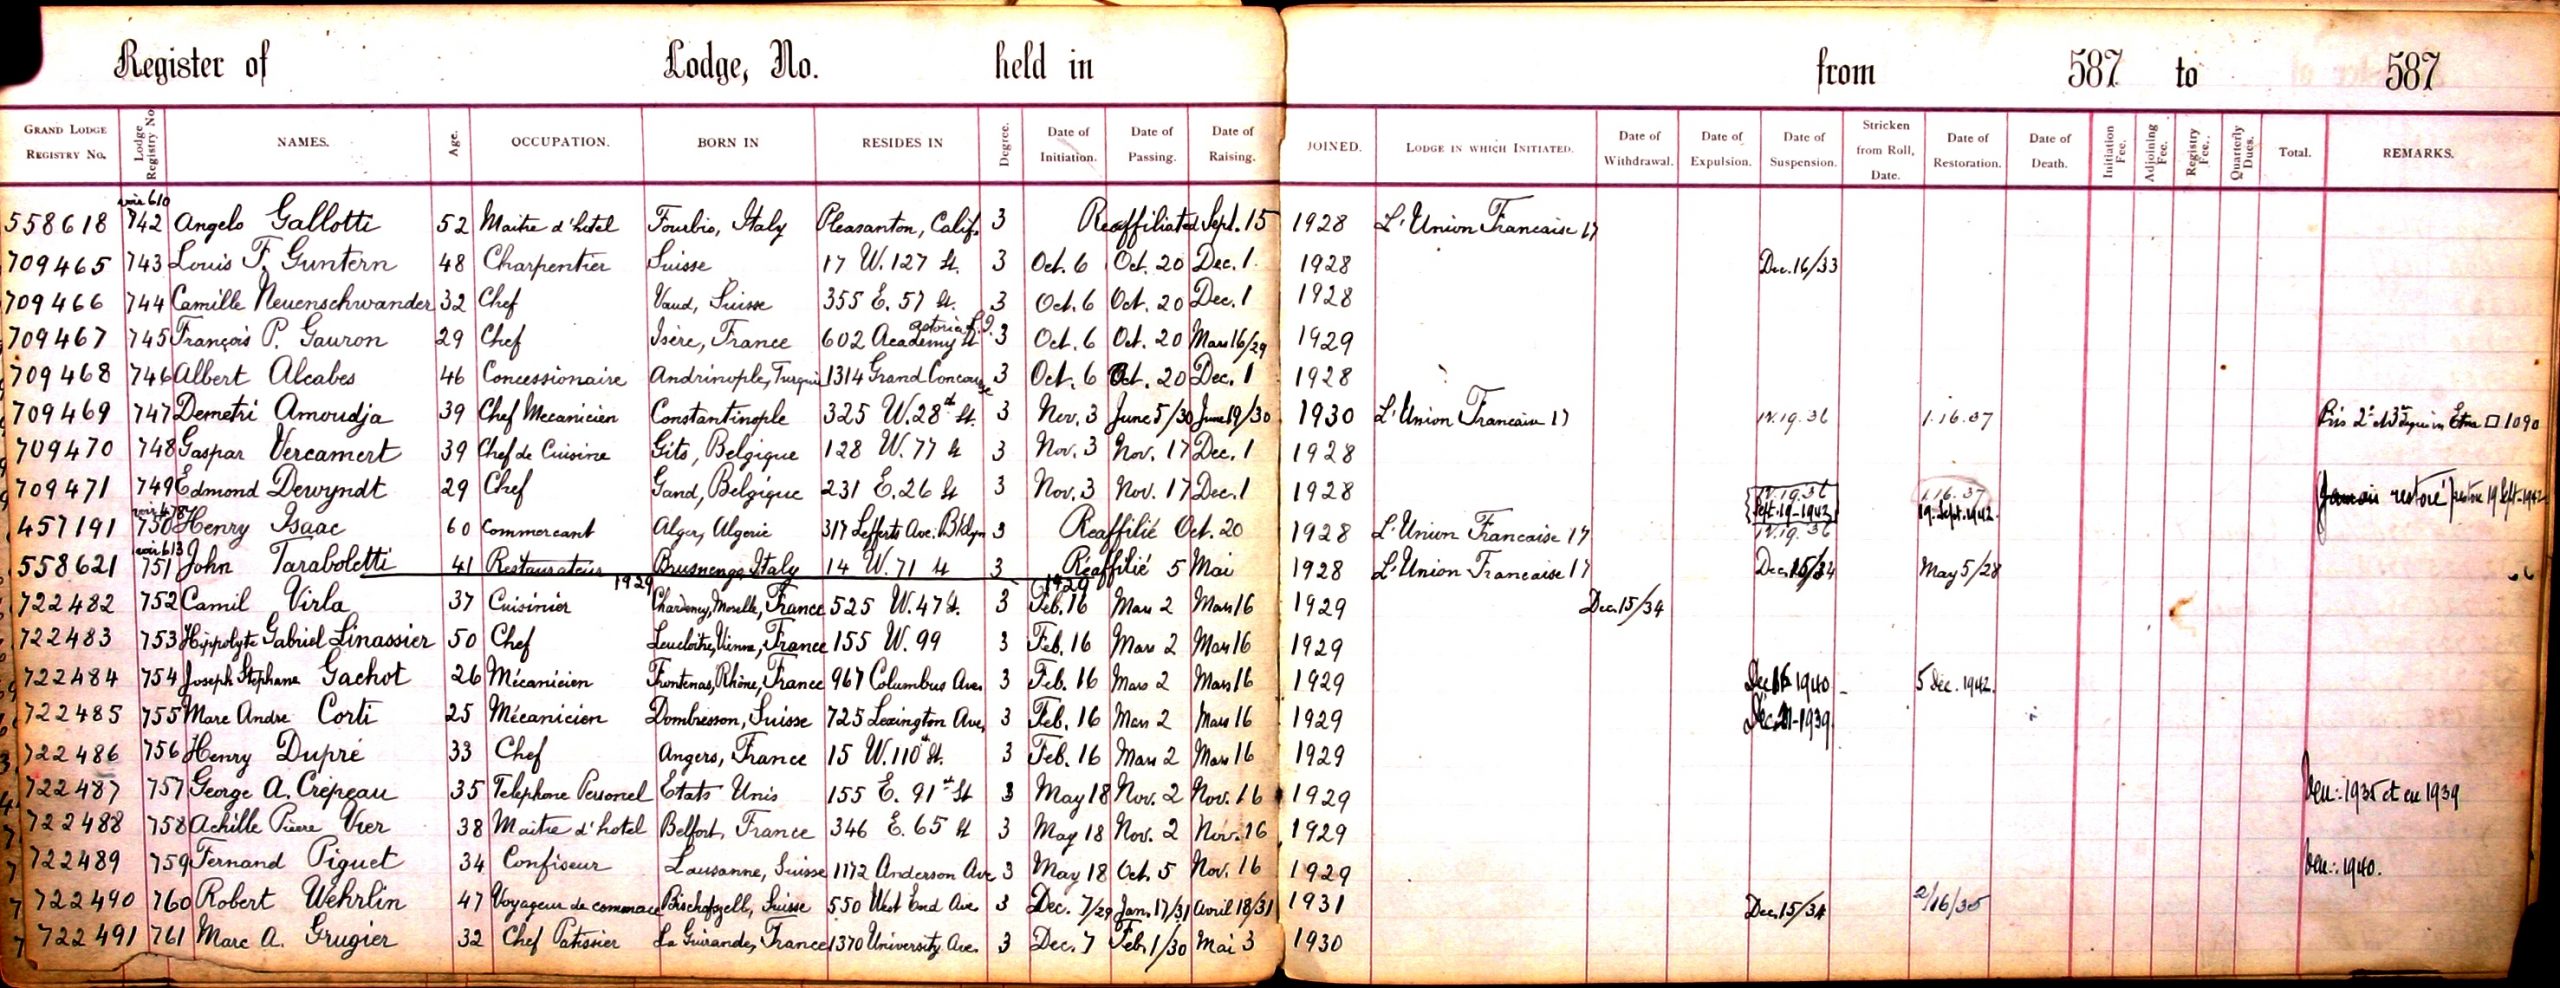 Register of Lodge, No. held in from 587 to 587
GRAND LODGE REGISTRY No. Lodge Registry No. NAMES. Age. OCCUPATION. BORN IN RESIDES IN Degree. Date of Initiation. Date of Passing. Date of Raising. JOINED. LODGE IN WHICH INITIATED. Date of Withdrawal. Date of Expulsion. Date of Suspension. Stricken from Roll, Date. Date of Restoration. Date of Death. Initiation Fee. Adjoining Fee. Registry Fee. Quarterly Dues. Total. REMARKS.
voir 610
558618 742 Angelo Gallotti 52 Maitre d'hotel Fourbio, Italy Pleasanton, Calif. 3 Reaffiliated Sept. 15 1928 L'Union Francaise 17
709465 743 Louis F. Guntern 48 Charpentier Suisse 17 W. 127 St. 3 Oct. 6 Oct. 20 Dec. 1 1928 Dec. 16/33
709466 744 Camille Neuenschwander 32 Chef Vaud, Suisse 355 E. 57 St. 3 Oct. 6 Oct. 20 Dec. 1 1928
Astoria L.I.
709467 745 François P. Gauron 29 Chef Isère, France 602 Academy St 3 Oct. 6 Oct. 20 Mars 16/29 1929
709468 746 Albert Alcabes 46 Concessionaire Andrinople, Turquie 1314 Grand Concourse 3 Oct. 6 Oct. 20 Dec. 1 1928
709469 747 Demetri Amoudja 39 Chef Mecanicien Constantinople 325 W. 28th St. 3 Nov. 3 June 5/30 June 19/30 1930 L'Union Francaise 17 12.19.36 1.16.37 Pris 2e et 3e Etna □ 1090
709470 748 Gaspar Vercamert 39 Chef de Cuisine Gits, Belgique 128 W. 77 St 3 Nov. 3 Nov. 17 Dec. 1 1928
709471 749 Edmond Dewyndt 29 Chef Gand, Belgique 231 E. 26 St 3 Nov. 3 Nov. 17 Dec. 1 1928 12.19.36 1.16.37 Jamais restoré restore 19 Sept-1942
Sept. 19-1942 19. Sept. 1942.
voir 478
457191 750 Henry Isaac 60 Commercant Alger, Algerie 317 Lefferts Ave. Bklyn 3 Reaffilié Oct. 20 1928 L'Union Francaise 17 12.19.36
voir 613
558621 751 John Taraboletti 41 Restaurateur Brusnengo, Italy 14 W. 71 St 3 Réaffilié 5 Mai 1928 L'Union Francaise 17 Dec. 15/34 May 5/28
1929 1929
722482 752 Camil Virla 37 Cuisinier Chardeny, Moselle, France 525 W. 47 St. 3 Feb. 16 Mars 2 Mars 16 1929 Dec. 15/34
722483 753 Hippolyte Gabriel Linassier 50 Chef Leucloitre, Vienne, France 155 W. 99 3 Feb. 16 Mars 2 Mars 16 1929
722484 754 Joseph Stephane Gachot 26 Mécanicien Frontenas, Rhône, France 967 Columbus Ave. 3 Feb. 16 Mars 2 Mars 16 1929 Dec 16 1940 5 Dec. 1942.
722485 755 Marc Andre Corti 25 Mécanicien Dombresson, Suisse 725 Lexington Ave. 3 Feb. 16 Mars 2 Mars 16 1929 Dec. 21-1939
722486 756 Henry Dupré 33 Chef Angers, France 15 W. 110th St. 3 Feb. 16 Mars 2 Mars 16 1929
722487 757 George A. Crépeau 35 Telephone Personel Etats Unis 155 E. 91st St 3 May 18 Nov. 2 Nov. 16 1929 Ven:. 1935 et en 1939
722488 758 Achille Pierre Vier 38 Maitre d'hotel Belfort, France 346 E. 65 St 3 May 18 Nov. 2 Nov. 16 1929
722489 759 Fernand Piguet 34 Confiseur Lausanne, Suisse 1172 Anderson Ave 3 May 18 Oct. 5 Nov. 16 1929 Ven:. 1940.
722490 760 Robert Wehrlin 47 Voyageur de commerce Bischofszell, Suisse 550 West End Ave. 3 Dec. 7/29 Jan. 17/31 Avril 18/31 1931 Dec. 15/34 2/16/35
722491 761 Marc A. Grugier 32 Chef Patissier La Guirande, France 1370 University Ave. 3 Dec. 7 Feb. 1/30 Mai 3 1930